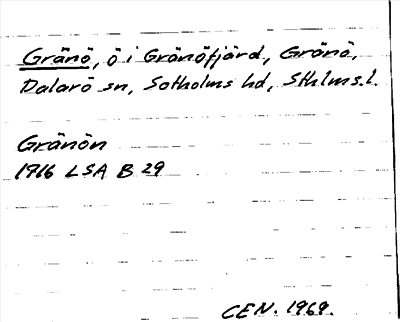 Gränö, ö i Gränöfjärd, Gränö,
Dalarö sn, Sotholms hd, Sthlms.l.
Gränön
1916 LSA B 29
CEN. 1969.